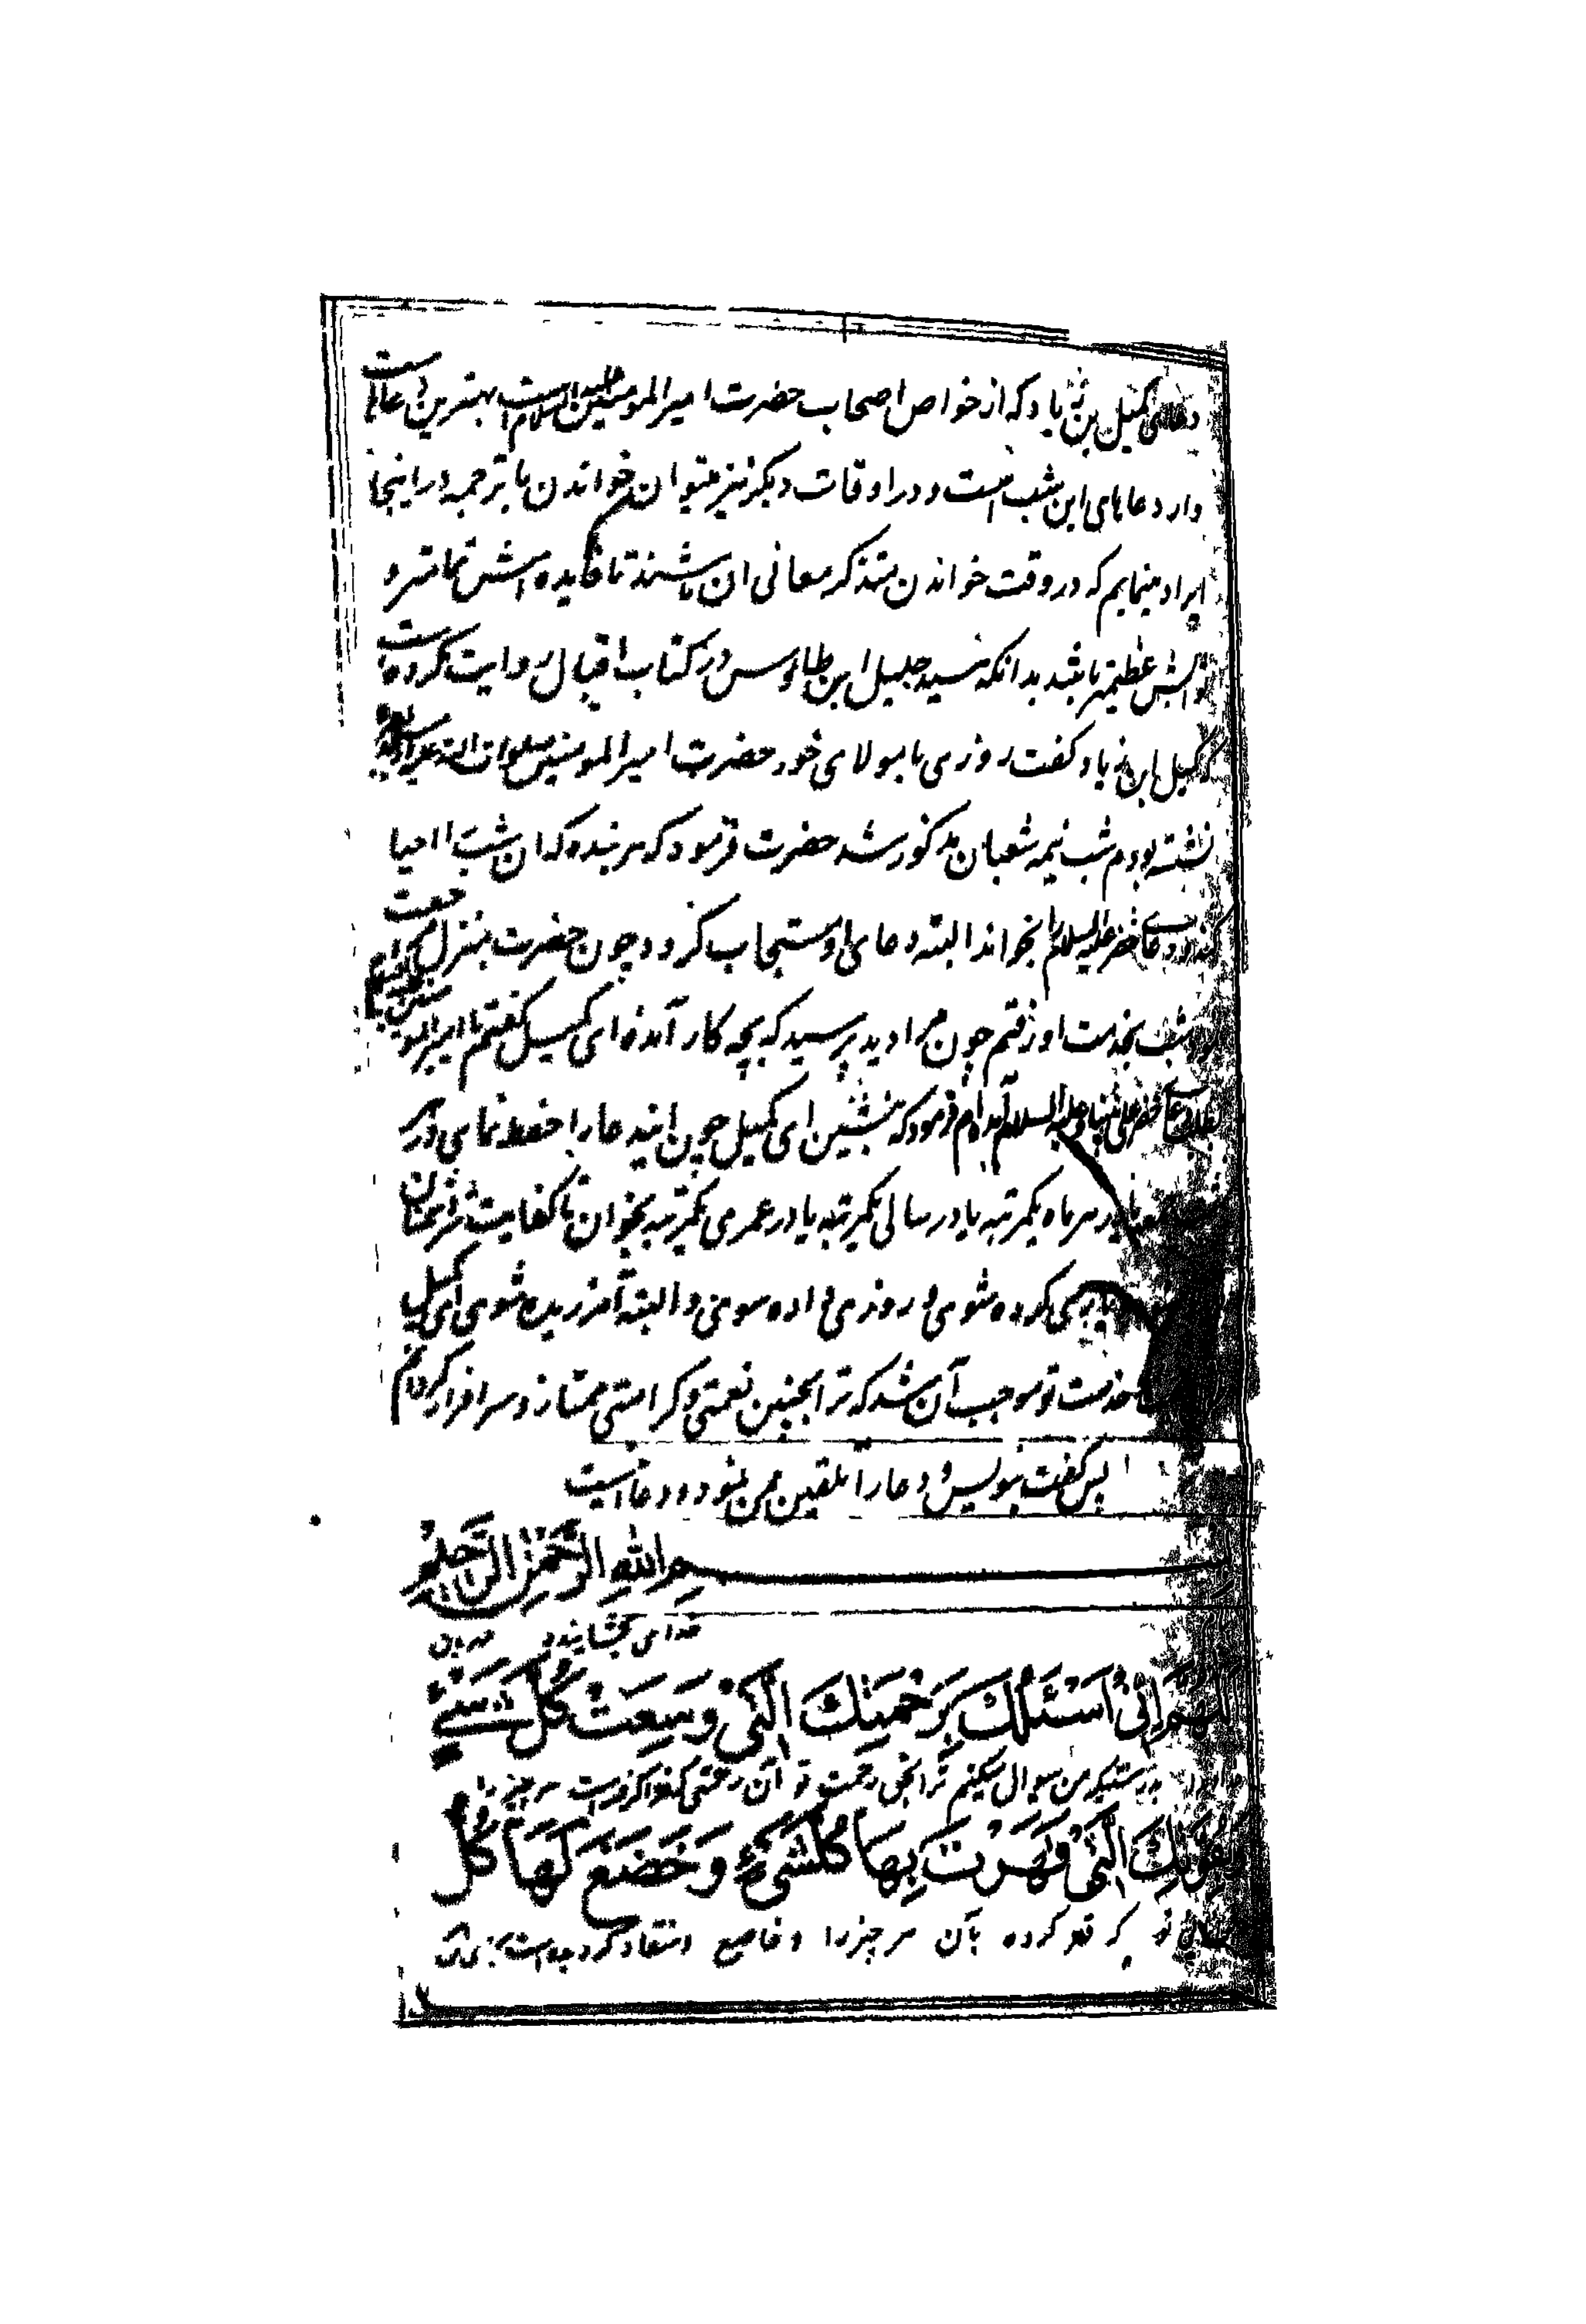 دعای کمیل بن زیاد که از خواص اصحاب حضرت امیرالمومنین علیه السلام است بهترین دعا است
وارد دعاهای این شب است و در اوقات دیگر نیز میتوان خواندن با ترجمه در اینجا
ایراد مینمایم که در وقت خواندن متذکر معانی ان باشند تا فایده اش تمامتر و
ثوابش عظیمتر باشد بدانکه سید جلیل ابن طاوس در کتاب اقبال روایت کرده است
که کمیل ابن زیاد گفت روزی با مولای خود حضرت امیرالمومنین صلوات الله علیه
نشسته بودم شب نیمه شعبان مذکور شد حضرت فرمود که هر بنده که ان شب را احیا
کند و دعای خضر علیه السلام را بخواند البته دعای او مستجاب گردد چون حضرت بمنزل
شب بخدمت او رفتم چون مرا دید پرسید که بچه کار آمدهٔ ای کمیل گفتم یا امیرالمومنین
دعای خضر علی نبینا و علیه السلام آمده ام فرمود که بنشین ای کمیل چون این دعا را حفظ نمای در هر
یا در هر ماه یکمرتبه یا در سالی یکمرتبه یا در عمری یکمرتبه بخوان تا کفایت شر دشمنان
یاری کرده شوی و روزی داده شوی و البته آمرزیده شوی ای کمیل
خدمت تو موجب آن شد که ترا بچنین نعمتی و کرامتی ممتاز و سرافراز کردم
پس گفت بنویس و دعا را تلقین من نمود و دعا اینست
بسم الله الرحمن الرحیم
خدای بخشاینده مهربان
اَللّٰهُمَّ اِنّی اَسْئَلُكَ بِرَحْمَتِكَ الَّتی وَسِعَتْ كُلَّ شَیْءٍ
بدرستیکه من سوال میکنم ترا بحق رحمت تو آن رحمتی که فرا گرفته است هر چیز را
وَ بِقُوَّتِكَ الَّتی قَهَرْتَ بِها كُلَّ شَیْءٍ وَ خَضَعَ لَها كُلُّ
تو که قهر کرده بآن هر چیز را و خاضع